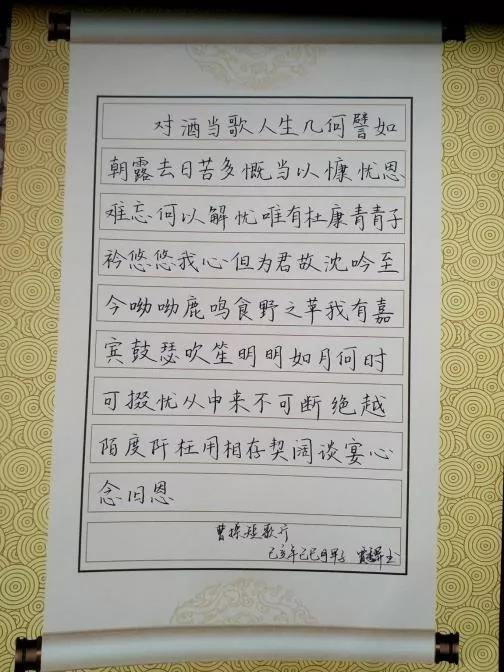 对酒当歌人生几何譬如
朝露去日苦多慨当以慷忧思
难忘何以解忧唯有杜康青青子
衿悠悠我心但为君故沈吟至
今呦呦鹿鸣食野之苹我有嘉
宾鼓瑟吹笙明明如月何时
可掇忧从中来不可断绝越
陌度阡枉用相存契阔谈宴心
念旧恩
曹操短歌行
己亥年己巳月